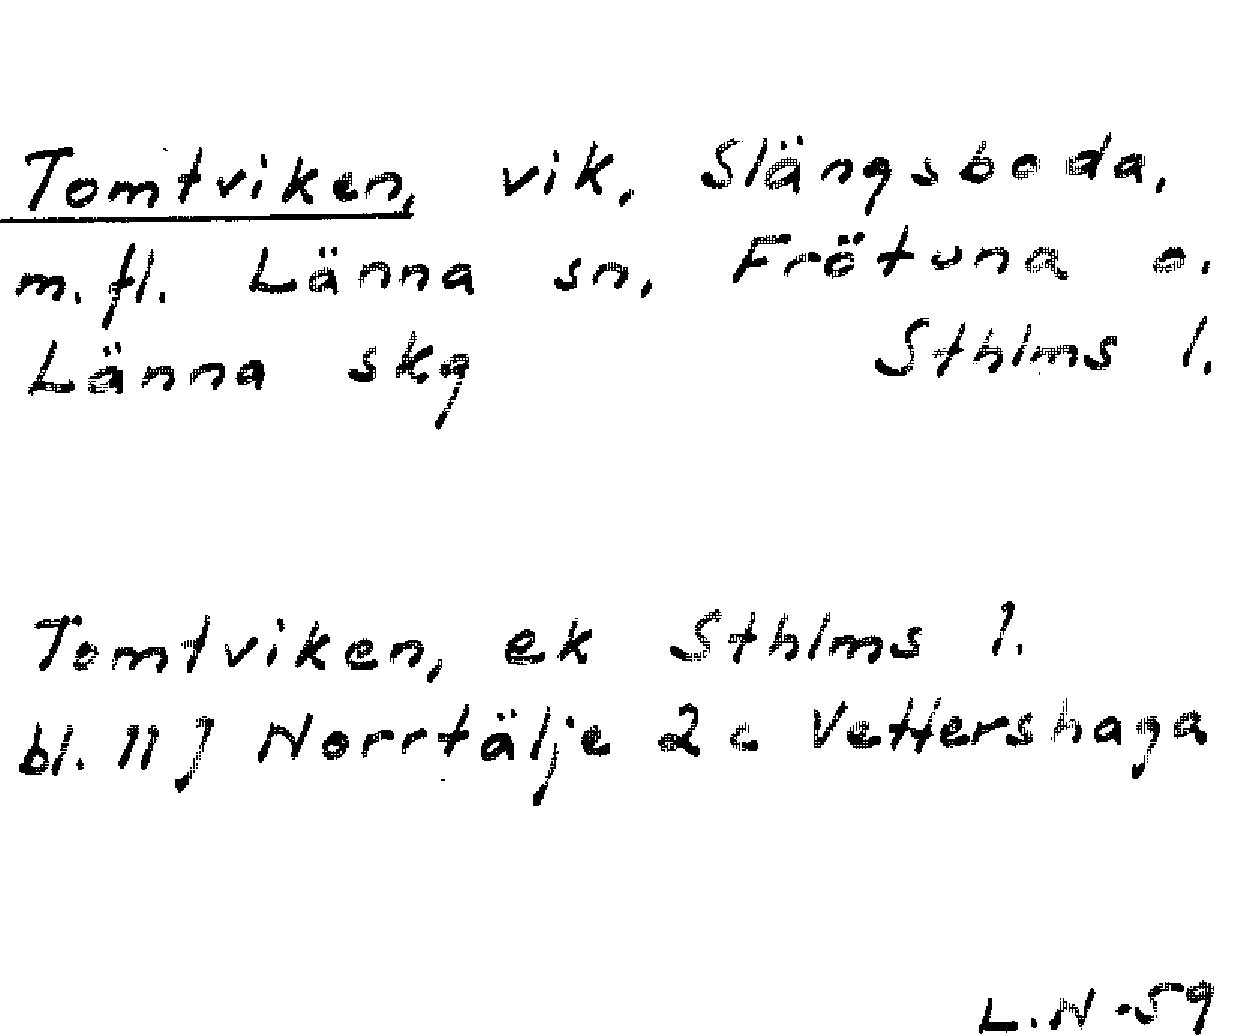 Tomtviken, vik, Slängsboda,
m.fl. Länna sn, Frötuna o.
Länna skg Sthlms l.
Tomtviken, ek Sthlms l.
bl. 11 J Norrtälje 2 c Vettershaga
L.N -59